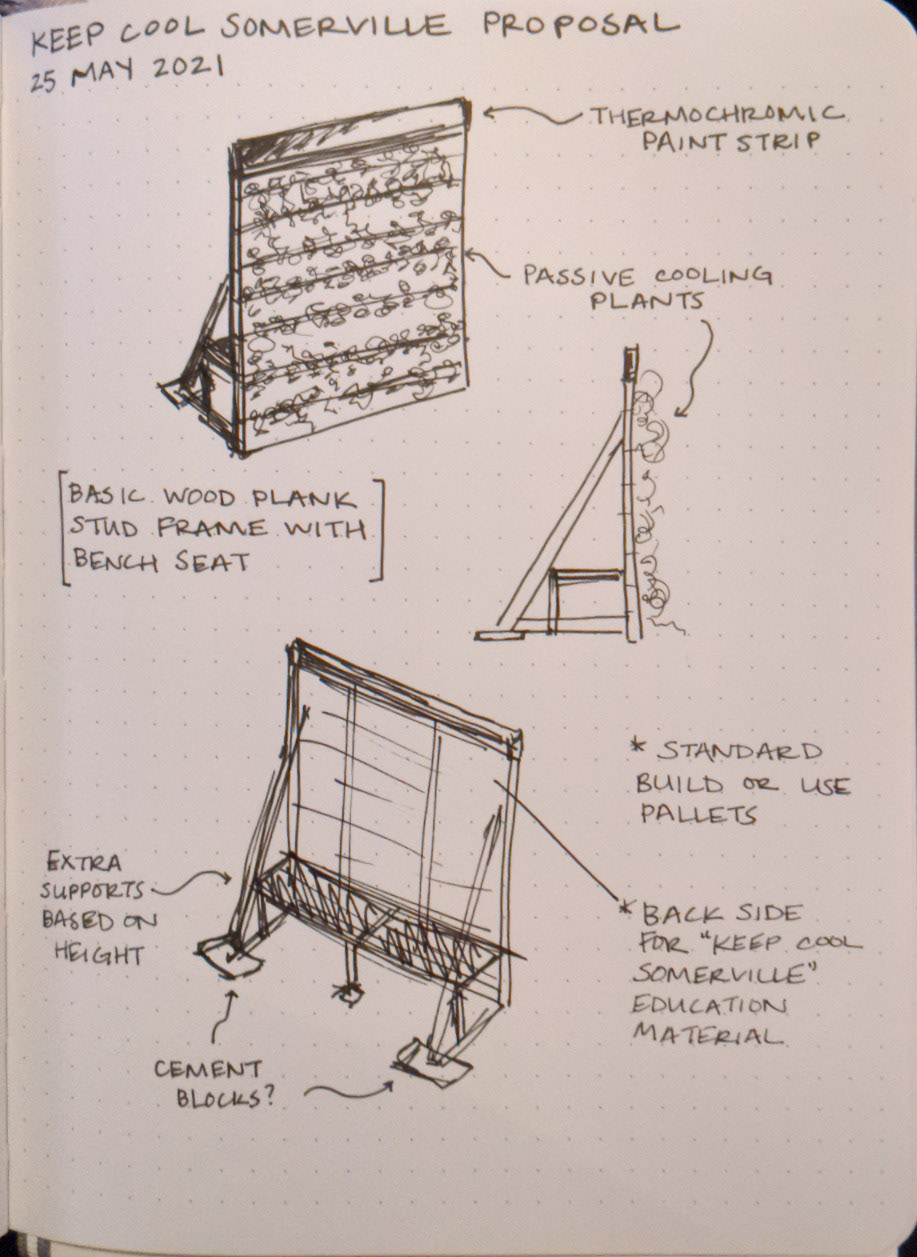 KEEP COOL SOMERVILLE PROPOSAL
25 MAY 2021
THERMOCHROMIC
PAINT STRIP
PASSIVE COOLING
PLANTS
[BASIC WOOD PLANK
STUD FRAME WITH
BENCH SEAT]
* STANDARD
BUILD OR USE
PALLETS
EXTRA
SUPPORTS
BASED ON
HEIGHT
* BACK SIDE
FOR "KEEP COOL
SOMERVILLE"
EDUCATION
MATERIAL
CEMENT
BLOCKS?